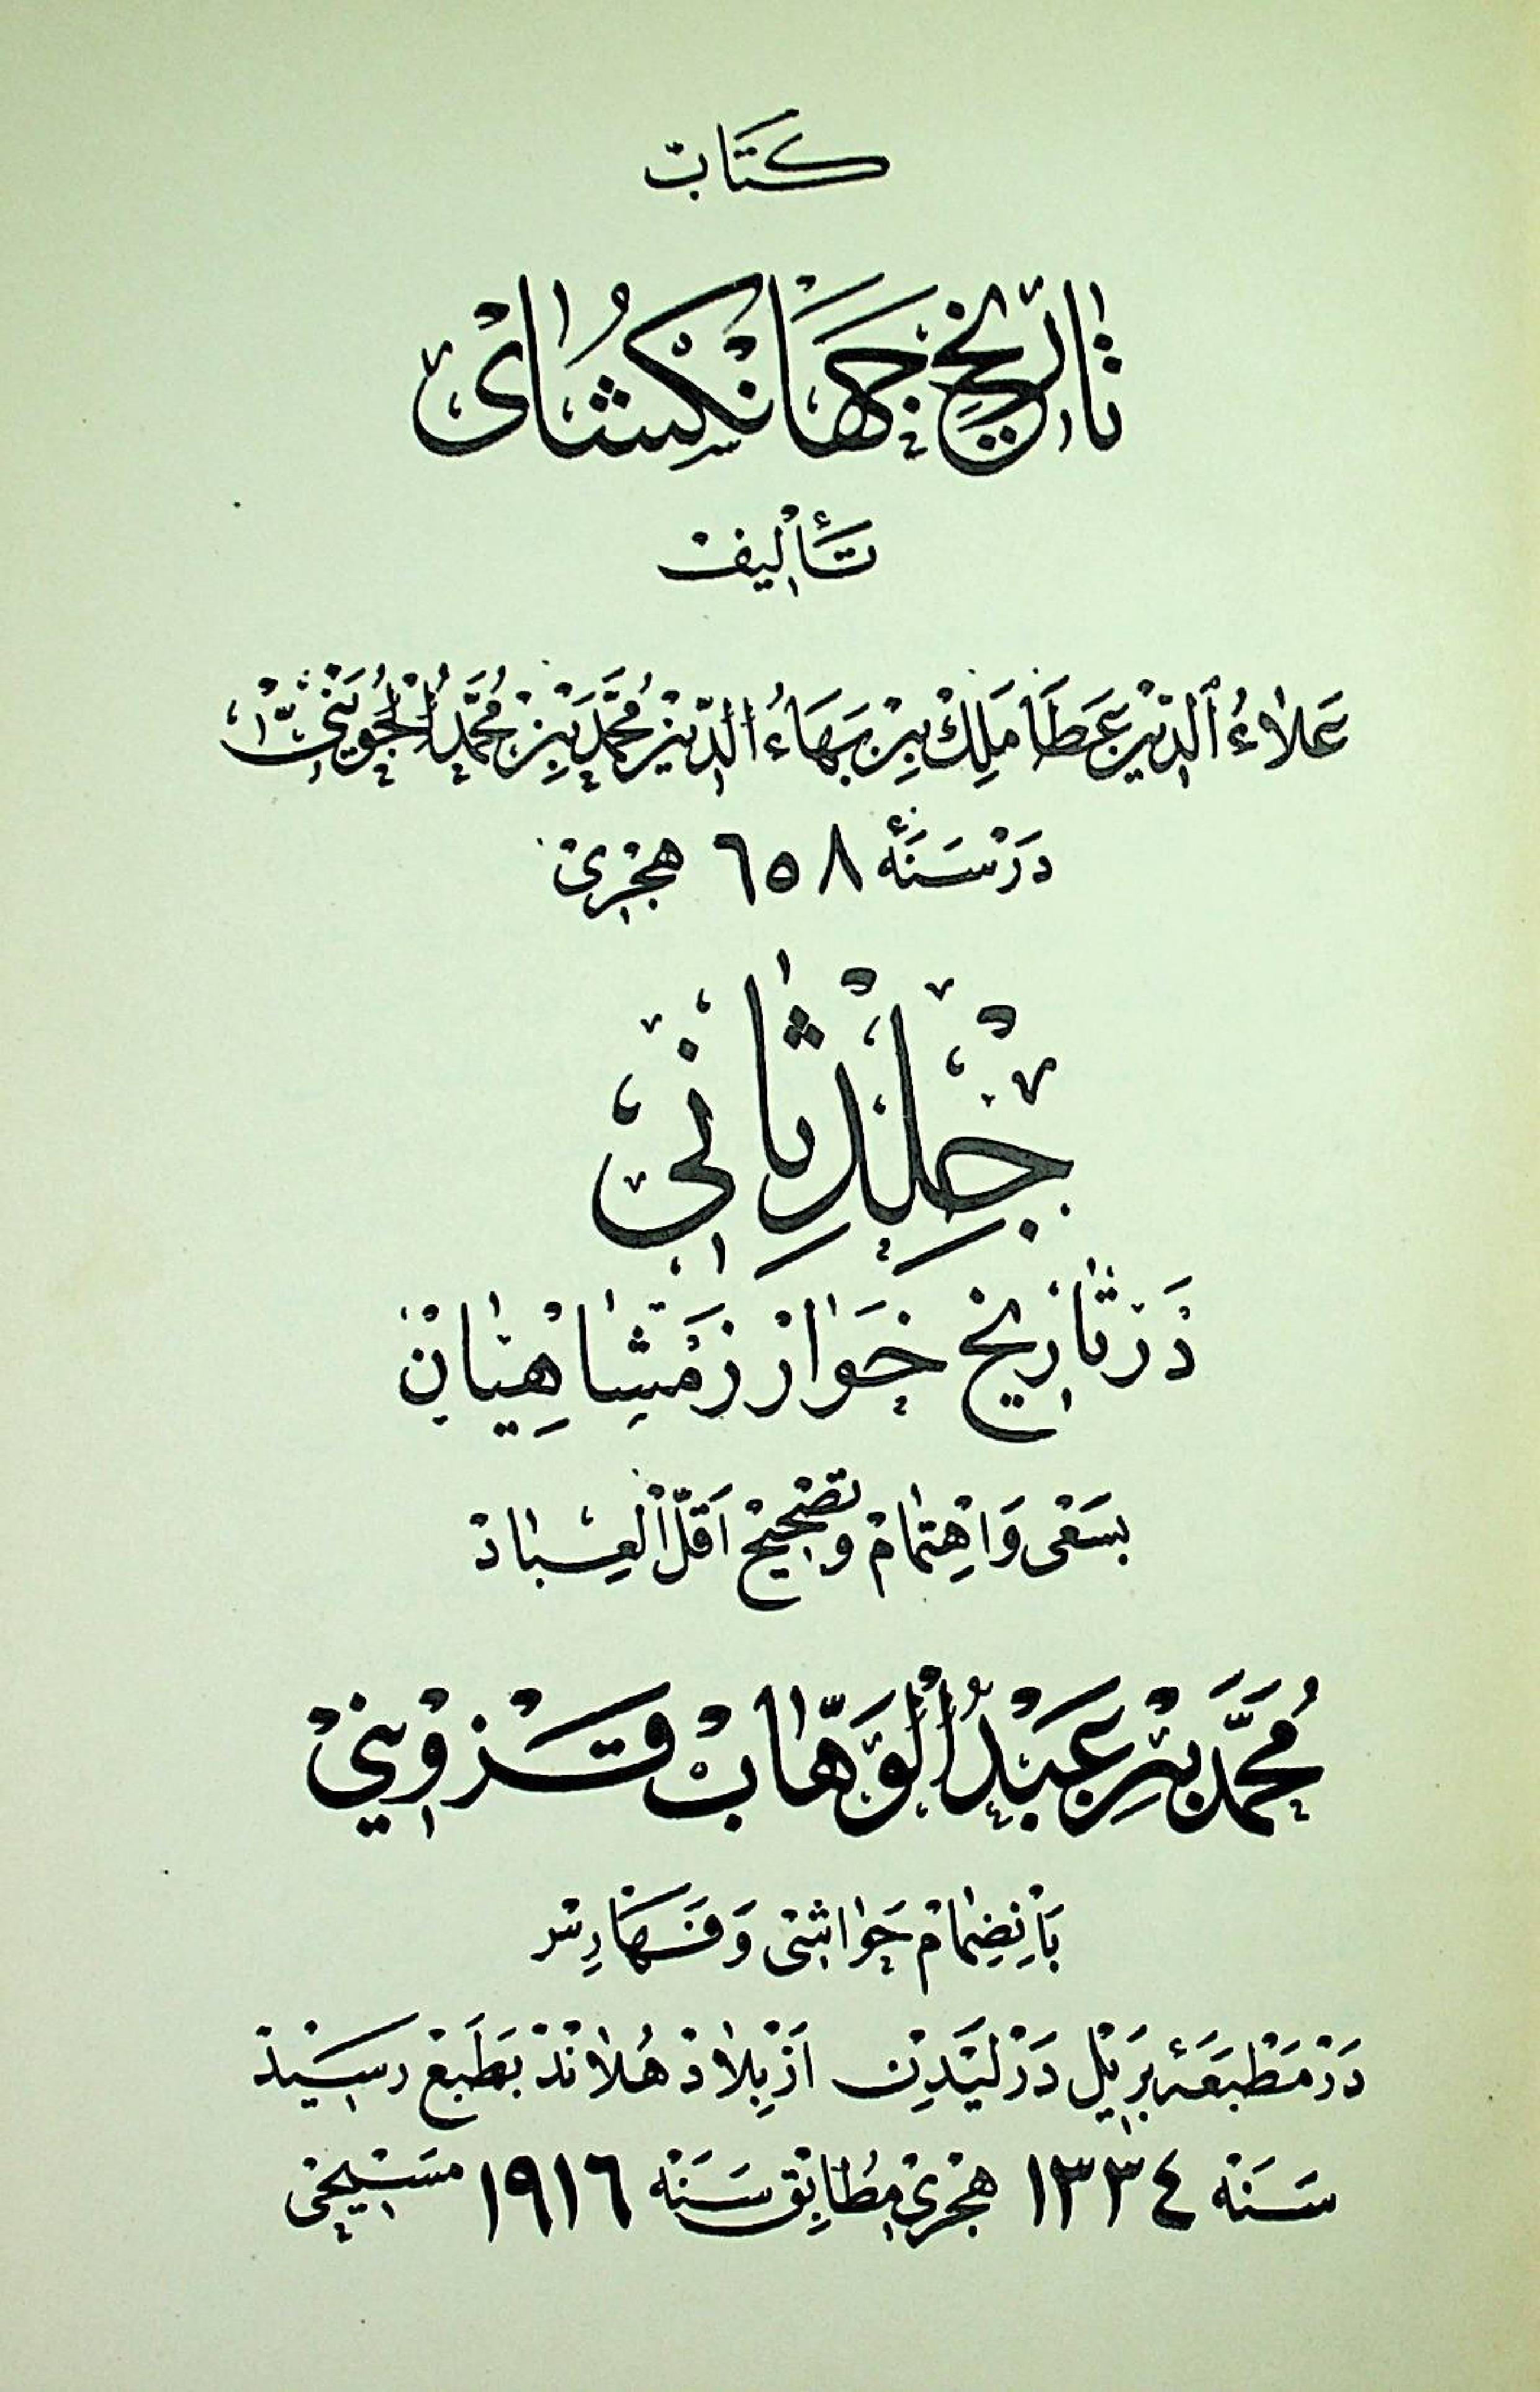 كتاب
تاريخ جهانكشای
تأليف
علاء الدين عطا ملك بن بهاء الدين محمد بن محمد الجوينی
در سنهٔ ٦٥٨ هجری
جلد ثانی
در تاريخ خوارزمشاهيان
بسعی و اهتمام و تصحيح اقل العباد
محمد بن عبد الوهاب قزوينی
بانضمام حواشی و فهارس
در مطبعهٔ بريل در ليدن از بلاد هلاند بطبع رسيد
سنه ١٣٣٤ هجری مطابق سنه ١٩١٦ مسيحی